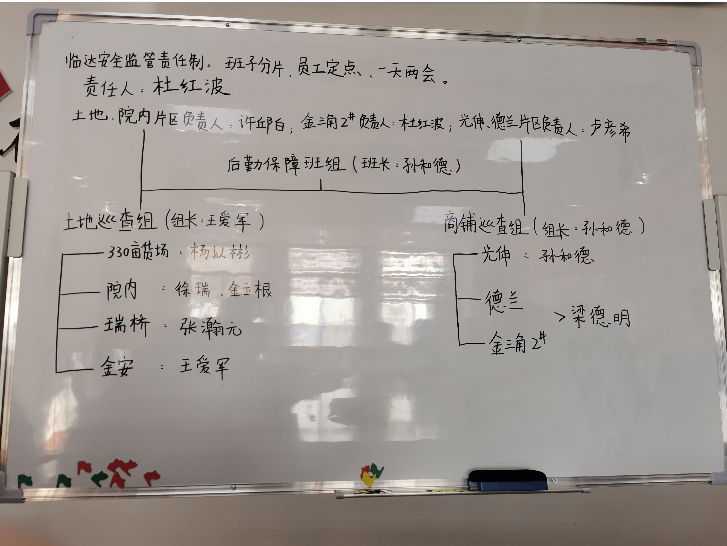 临达安全监管责任制：班子分片、员工定点、一天两会。
责任人：杜红波
土地、院内片区负责人：许邱白；金三角2#负责人：杜红波；光伸、德兰片区负责人：卢彦希
后勤保障班组（班长：孙和德）
土地巡查组（组长：王爱军）
330亩货场：杨以彬
院内：徐瑞、金立根
瑞桥：张瀚元
金安：王爱军
商铺巡查组（组长：孙和德）
光伸：孙和德
德兰
金三角2#
>梁德明